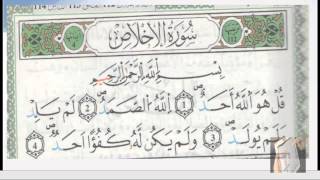 سُورَةُ الإِخْلَاصِ
بِسْمِ اللَّهِ الرَّحْمَٰنِ الرَّحِيمِ
قُلْ هُوَ اللَّهُ أَحَدٌ ① اللَّهُ الصَّمَدُ ② لَمْ يَلِدْ
وَلَمْ يُولَدْ ③ وَلَمْ يَكُن لَّهُ كُفُوًا أَحَدٌ ④